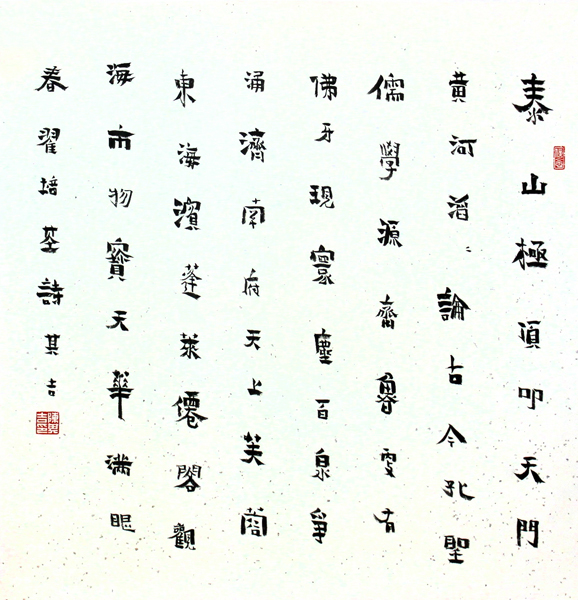 泰山極頂叩天門
黄河滔〻論古今孔聖
儒學源齊魯更有
佛牙現寰塵百泉爭
涌濟南府天上芙蓉
東海濱蓬萊僊閣觀
海市物寶天華滿眼
春翟培基詩其吉